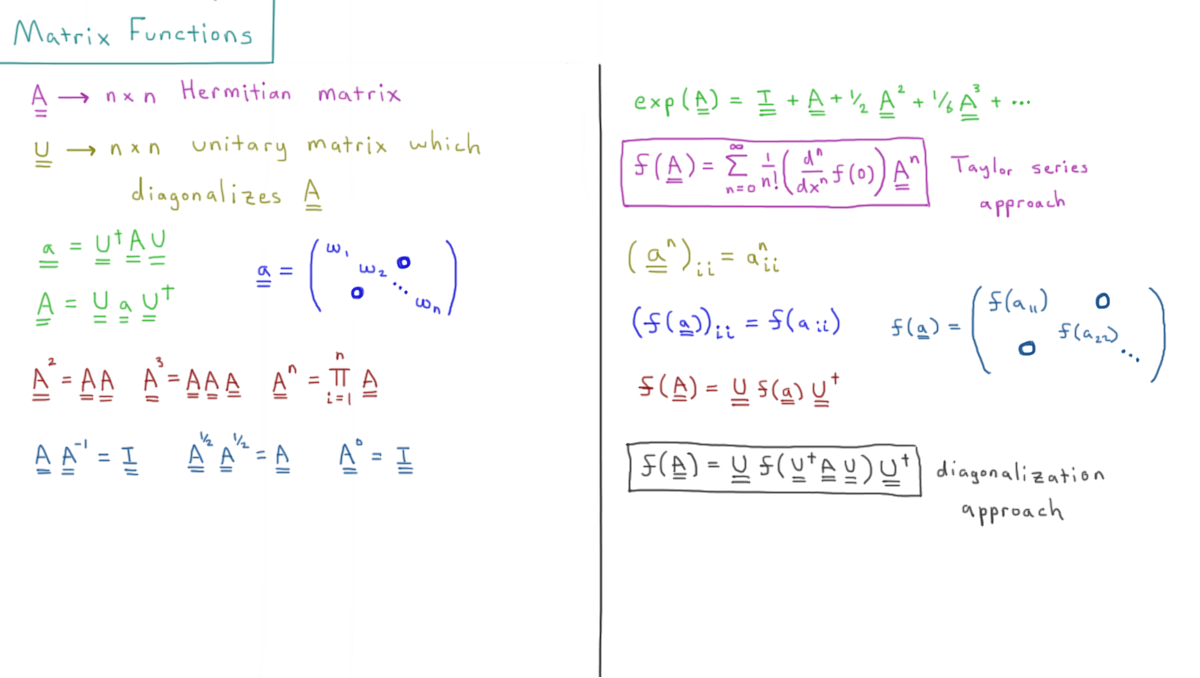 Matrix Functions
A̳ → n x n Hermitian matrix
U̳ → n x n unitary matrix which
diagonalizes A̳
a̳ = U̳† A̳ U̳
A̳ = U̳ a̳ U̳†
a̳ = ( ω₁ ω₂ 0 0 ⋱ ωₙ )
A̳² = A̳ A̳ A̳³ = A̳ A̳ A̳ A̳ⁿ = ∏ᵢ₌₁ⁿ A̳
A̳ A̳⁻¹ = I̳ A̳^½ A̳^½ = A̳ A̳⁰ = I̳
exp(A̳) = I̳ + A̳ + ½ A̳² + 1/6 A̳³ + ...
f(A̳) = ∑ₙ₌₀^∞ 1/n! (dⁿ/dxⁿ f(0)) A̳ⁿ Taylor series
approach
(a̳ⁿ)ᵢᵢ = aᵢᵢⁿ
(f(a̳))ᵢᵢ = f(aᵢᵢ) f(a̳) = ( f(a₁₁) 0 f(a₂₂) 0 ⋱ )
f(A̳) = U̳ f(a̳) U̳†
f(A̳) = U̳ f(U̳† A̳ U̳) U̳† diagonalization
approach